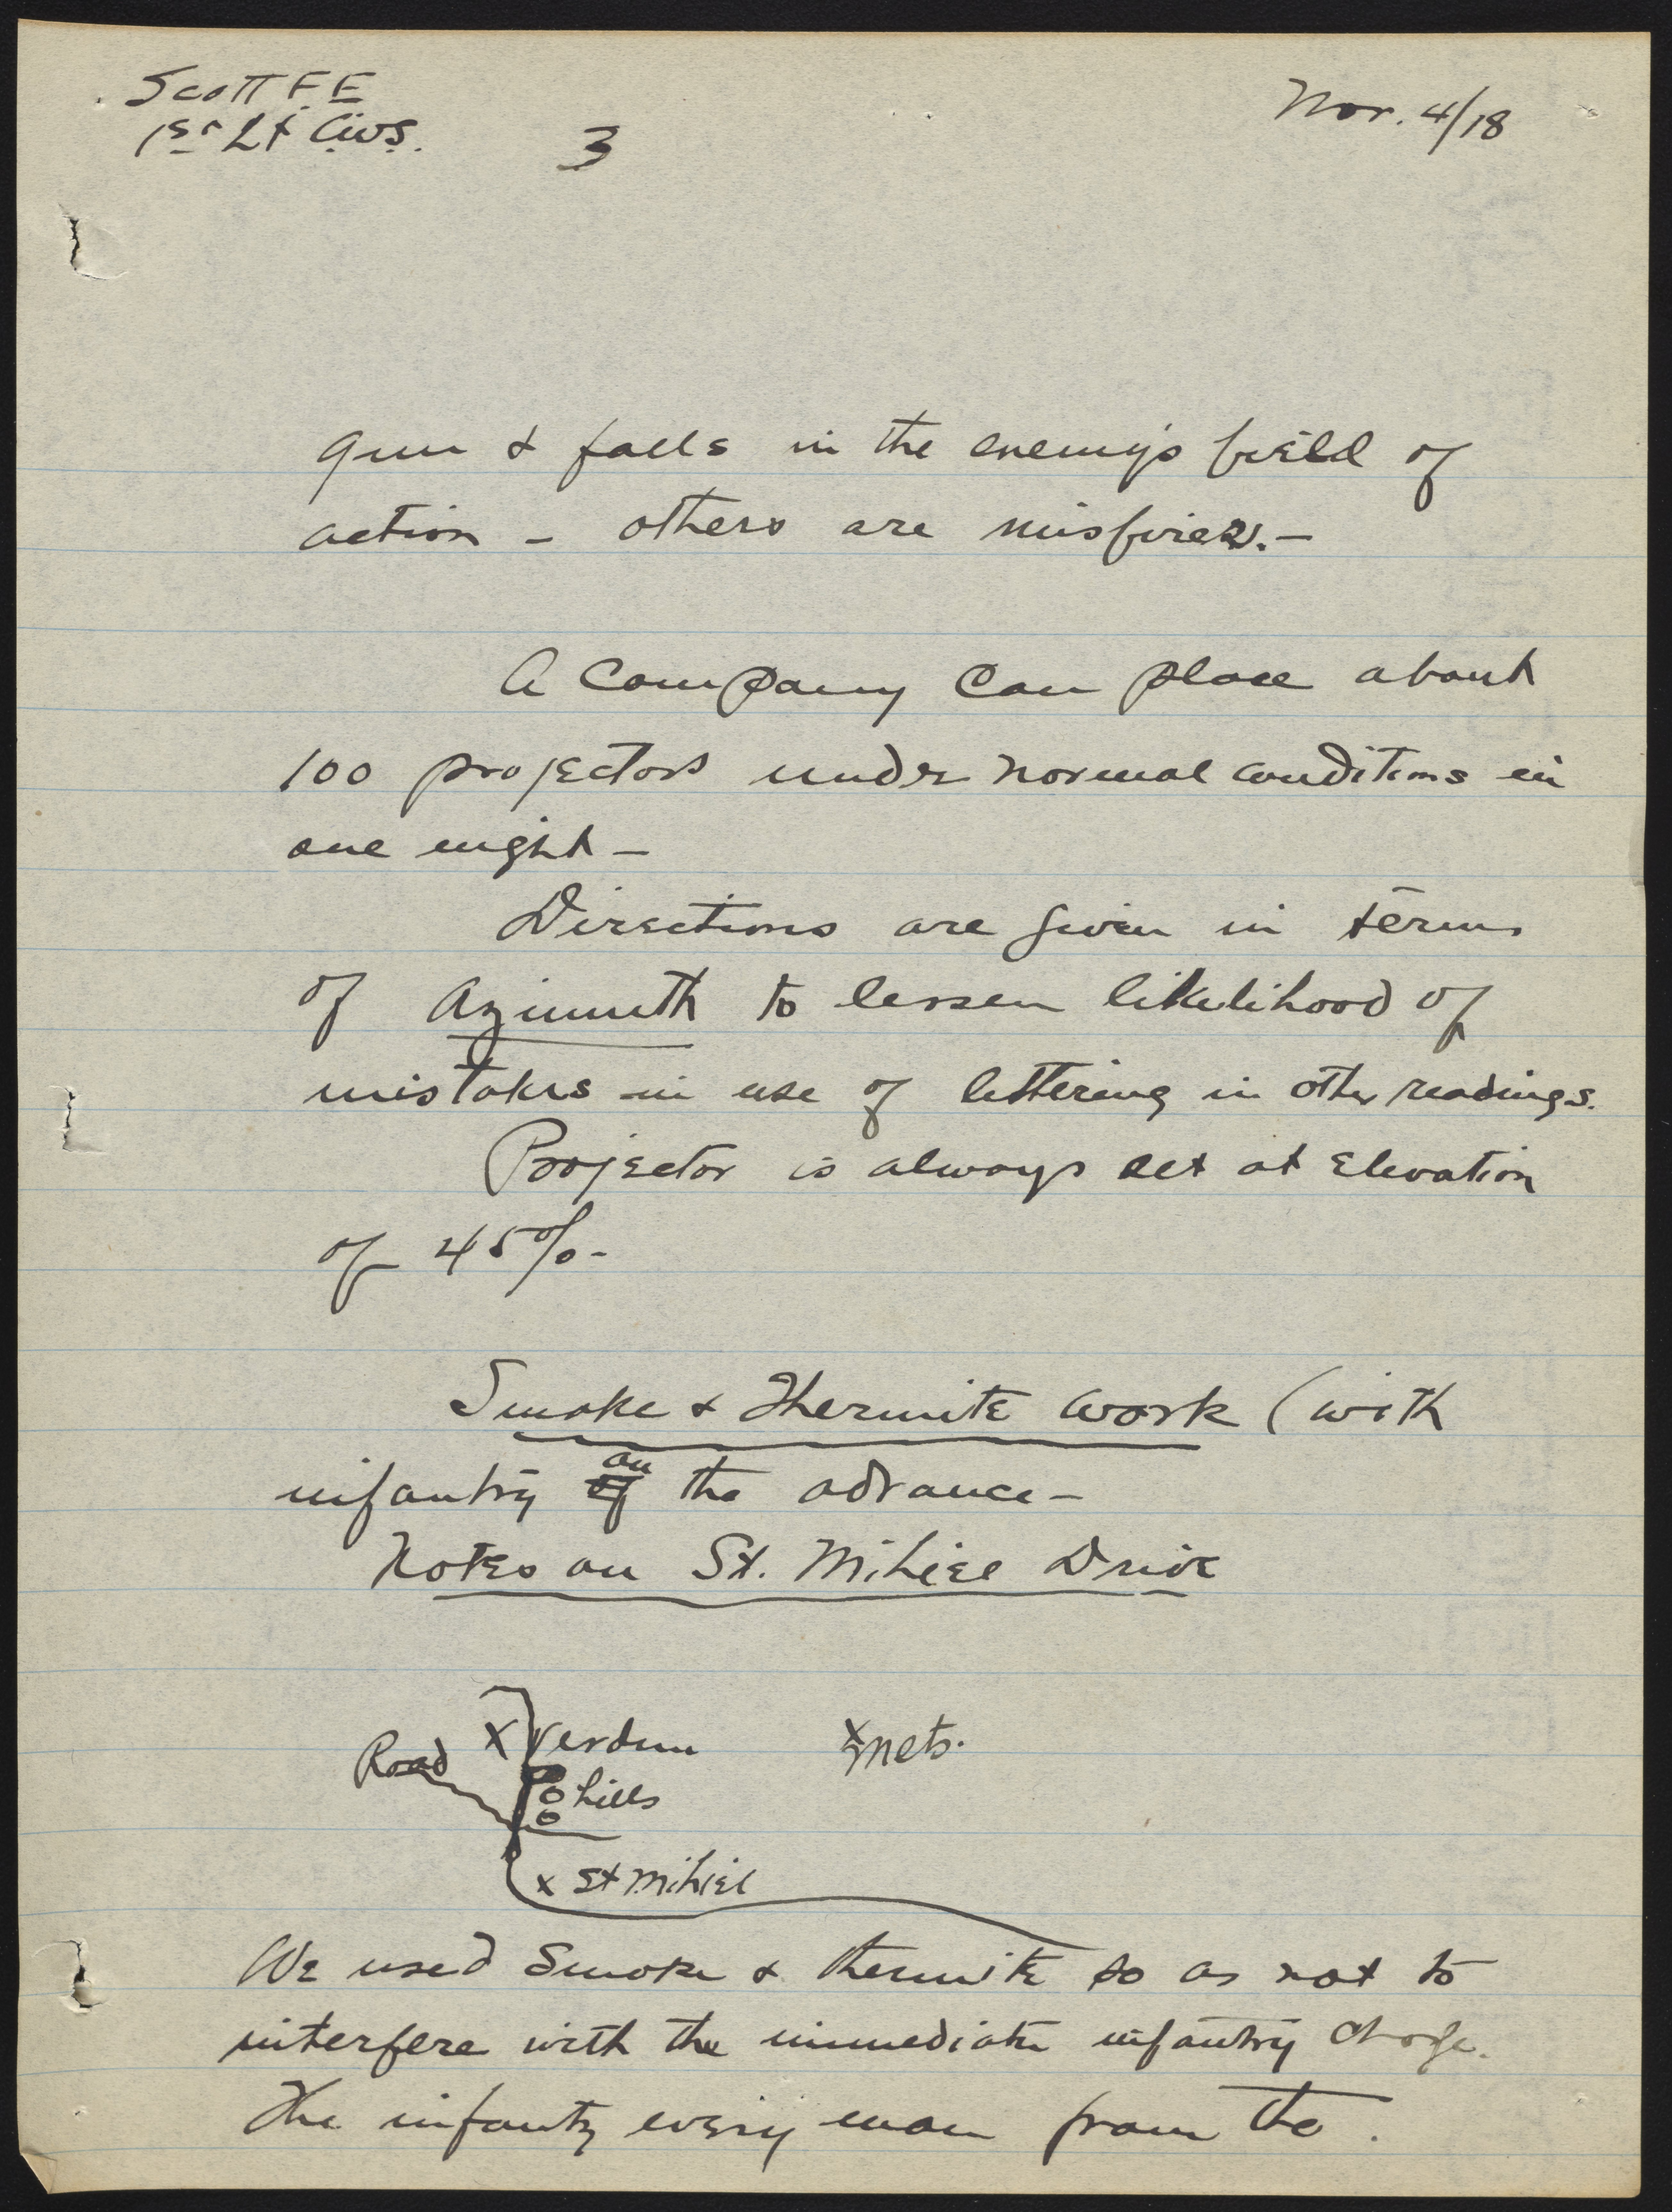 Scott F.E.
1st Lt C.W.S.
3
Nov. 4/18
gun & falls in the enemy's field of
action – others are misfires. –
A Company can place about
100 projectors under normal conditions in
one night –
Directions are given in terms
of Azimuth to lessen likelihood of
mistakes in use of lettering in other readings.
Projector is always set at Elevation
of 45%–
Smoke & Thermite work (with
infantry on the advance –
Notes on St. Mihiel Drive
Road
X Verdun
x Mets.
hills
x St Mihiel
We used Smoke & thermite so as not to
interfere with the immediate infantry charge.
The infantry every man from the